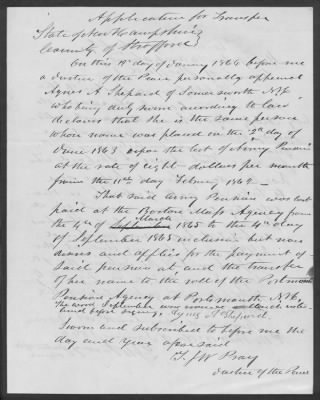 Application for Transfer
State of New Hampshire
County of Strafford
On this 18th day of January 1866 before me
a Justice of the Peace personally appeared
Agnes A Shepard of Somersworth N.H.
who being duly sworn according to law
declares that she is the same person
whose name was placed on the 2d day of
June 1863 upon the list of Army Pensioners
at the rate of eight dollars per month
from the 11th day 1862 —
That said Army Pension was last
paid at the Boston Mass Agency from
the 4th of March 1865 to the 4th day
of September 1865 inclusive but now
and applies for the payment of
said pension at, and the transfer
of her name to the roll of the Portsmouth
Pension Agency at Portsmouth, N.H.
The word September was March
and before signing. Agnes A Shepard
Sworn and subscribed to before me the
day and year aforesaid
T. J. W. Pray
Justice of the Peace